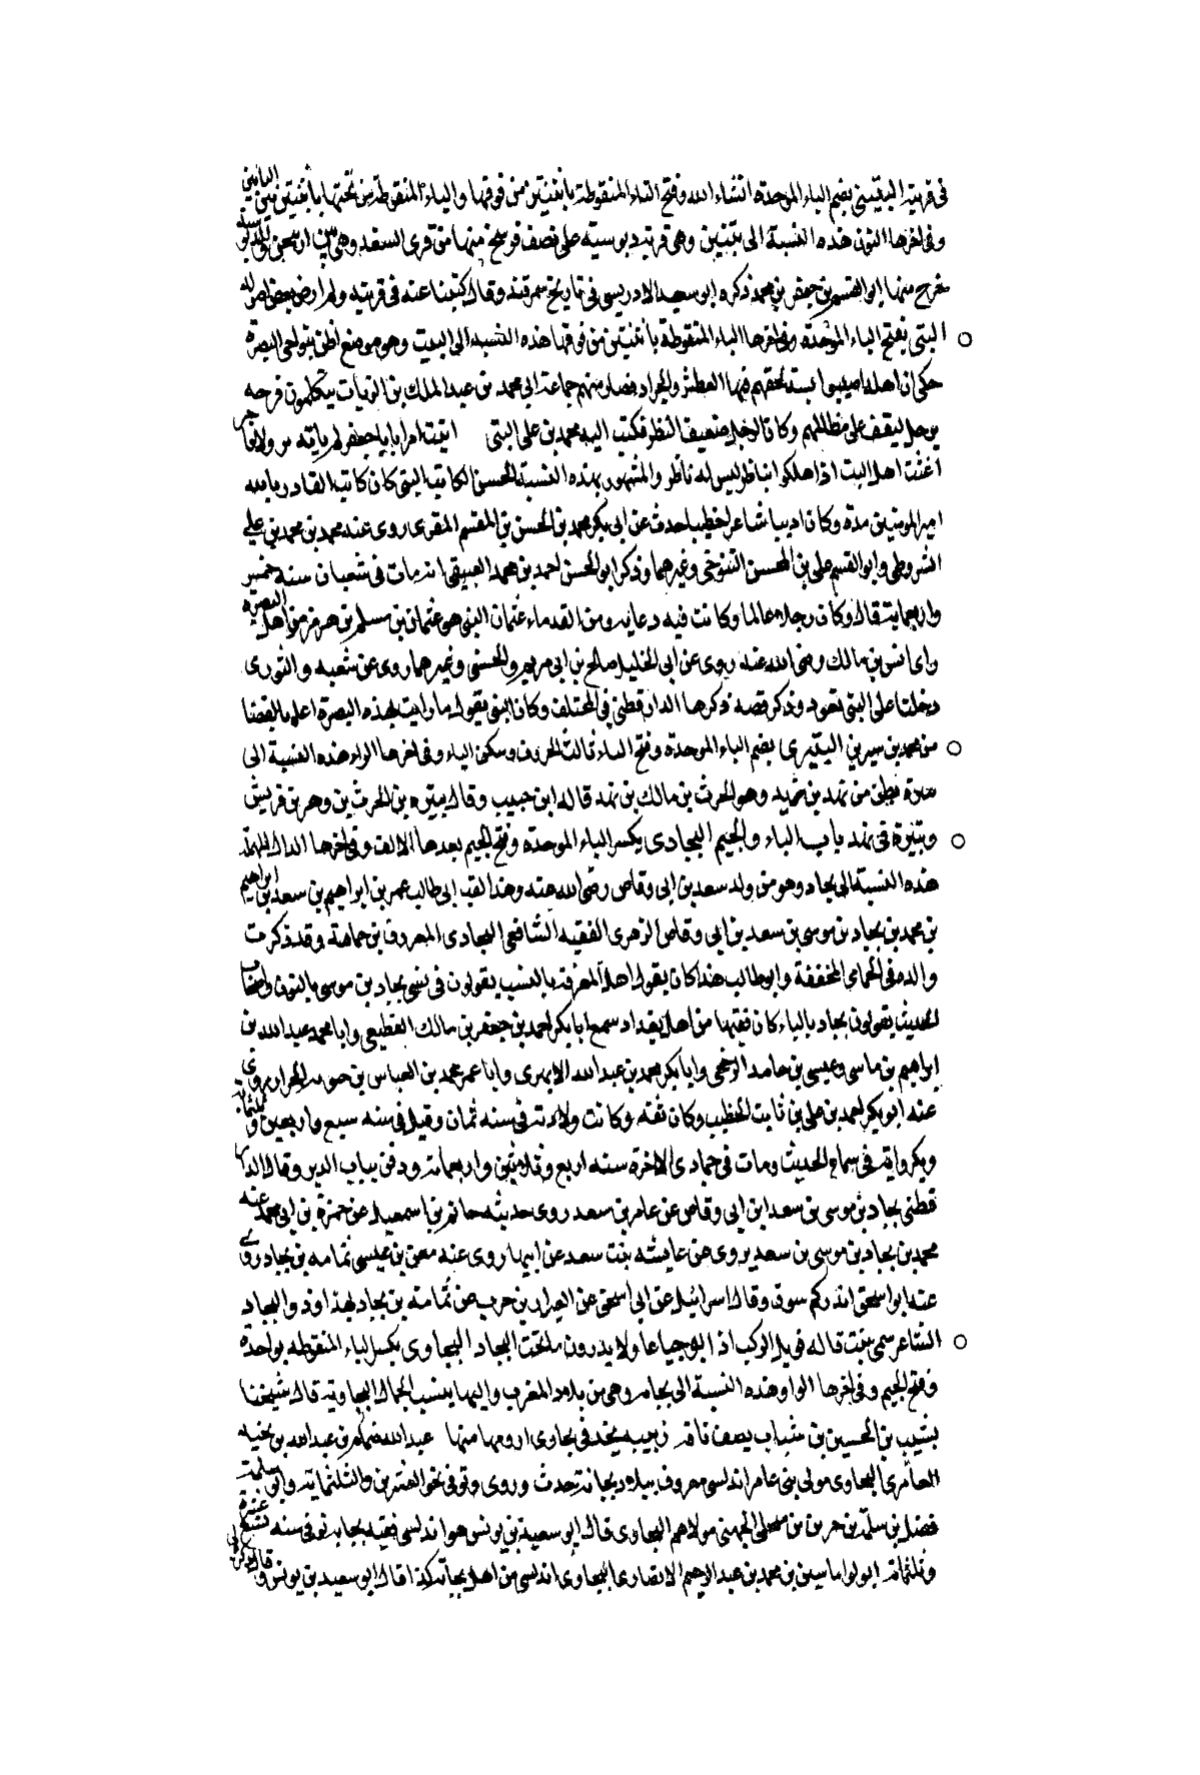 في قرية البتيني بضم الباء الموحدة انشاء الله وفتح التاء المنقوطة باثنتين من فوقها والياء المنقوطة من تحتها باثنتين
وفي اخرها النون هذه النسبة الى بتنين وهي قرية دبوسية على نصف فرسخ منها من قرى السغد وهي بين
خرج منها ابو القسم بن جعفر بن محمد ذكره ابو سعيد الادريسي في تاريخ سمرقند وقال كتبنا عنه في قريته ولم ارض بعض اصوله
البتي بفتح الباء الموحدة وفي اخرها التاء المنقوطة باثنتين من فوقها هذه النسبة الى البت وهو موضع اظن بنواحي البصرة
حكى ان اهلها اصيبوا بسنة لحقهم فيها العطش والجراد فصار منهم جماعة الى محمد بن عبد الملك بن الزيات يتكلمون فوجه
برجل ليقف على مظالمهم وكان الرجل ضعيف النظر فكتب اليه محمد بن علي البتي اتيت امرا يا با جعفر لم ياته بر ولا فاجر
اغثت اهل البت اذ اهلكوا بناظر ليس له ناظر والمشهور بهذه النسبة الحسن الكاتب البتي كان كاتب القادر بالله
امير المومنين مدة وكان اديبا شاعرا خطيبا حدث عن ابي بكر محمد بن الحسن بن المقسم المقرى روى عنه محمد بن محمد بن علي
الشروطي وابو القسم علي بن المحسن التنوخي وغيرهما وذكر ابو الحسن احمد بن محمد العتيقي انه مات في شعبان سنة خمس
واربعماية قال وكان رجلا عالما وكانت فيه دعابه ومن القدماء عثمان البتي هو عثمان بن مسلم بن هرمز من اهل البصرة
راى انس بن مالك رضي الله عنه روى عن ابي الخليل صالح بن ابي مريم والحسن وغيرهما روى عن شعبه والثوري
دخلنا على البتي نعود وذكر قصه ذكرها الدارقطني في المختلف وكان البتي يقول ما رايت بهذه البصرة اعلم بالقضا
من محمد بن سيرين البتيري بضم الباء الموحدة وفتح التاء ثالث الحروف وسكون الياء وفي اخرها الراء هذه النسبة الى
بتيرة بطن من نهد بن زيد وهو الحرث بن مالك بن نهد قاله ابن حبيب وقال بتيره بن الحرث بن وهر بن قريش
وبتيرة في نهد باب الباء والجيم البجادي بكسر الباء الموحدة وفتح الجيم بعدها الالف وفي اخرها الدال المهملة
هذه النسبة الى بجاد وهو من ولد سعد بن ابي وقاص رضي الله عنه وهذا لقب ابي طالب عمر بن ابراهيم بن سعد بن ابراهيم
بن محمد بن بجاد بن موسى بن سعد بن ابي وقاص الزهري الفقيه الشافعي البجادي المعروف بن حمامة وقد ذكرت
والده في الحمامي المخففة وابو طالب هذا كان يقول اهل المعرفة بالنسب يقولون في نسبي بجاد بن موسى بالنون واصحاب
الحديث يقولون بجاد بالباء كان فقيها من اهل بغداد سمع ابا بكر احمد بن جعفر بن مالك القطيعي وابا محمد عبد الله بن
ابراهيم بن ماسي وعيسى بن حامد الرخجي وابا بكر محمد بن عبد الله الابهري وابا عمر محمد بن العباس بن حيويه الخزاز روى
عنه ابو بكر احمد بن علي بن ثابت الخطيب وكان ثقه وكانت ولادته في سنه ثمان وقيل في سنه سبع واربعين وثلثماية
وبكر واية في سماع الحديث ومات في جمادى الاخرة سنه اربع وثلاثين واربعماية ودفن بباب الدير وقال الدار
قطني بجاد بن موسى بن سعد ابن ابي وقاص عن عامر بن سعد روى حديثه حاتم بن اسمعيل عن حمزة بن ابي محمد عنه
محمد بن بجاد بن موسى بن سعد يروى عن عايشه بنت سعد عن ابيها روى عنه معن بن عيسى ثمامه بن بجاد روى
عنه ابو اسحق انذركم سوف وقال اسرائيل عن ابي اسحق عن العيزار بن حرب عن ثمامة بن بجاد بهذا والبجاد
الشاعر سمي ببيت قاله فويل الركب اذ ابوا جياعا ولا يدرون ما تحت البجاد البجاوي بكسر الباء المنقوطه بواحدة
وفتح الجيم وفي اخرها الواو هذه النسبة الى بجايه وهي من بلاد المغرب واليها ينسب الجمال البجاوية قال شيخنا
بشيب بن الحسين بن شباب يصف ناقة ربيبه يخد في بجاوى ارومها منها عبد الله ضمام بن عبد الله بن نجيه
العامري البجاوي مولى بني عامر اندلسي معروف ببلاد بجانة حدث وروى وتوفي نحو العشرين والثلثماية وابو سلمة
فضل بن سلمة بن حرير بن منخل الجهني مولاهم البجاوي قال ابو سعيد بن يونس هو اندلسي فقيه بجايه توفي سنه تسع عشرة
وثلثماية ابو لواما سين بن محمد بن عبد الرحيم الانصاري البجاوي اندلسي من اهل بجانة كذا قال ابو سعيد بن يونس وقال